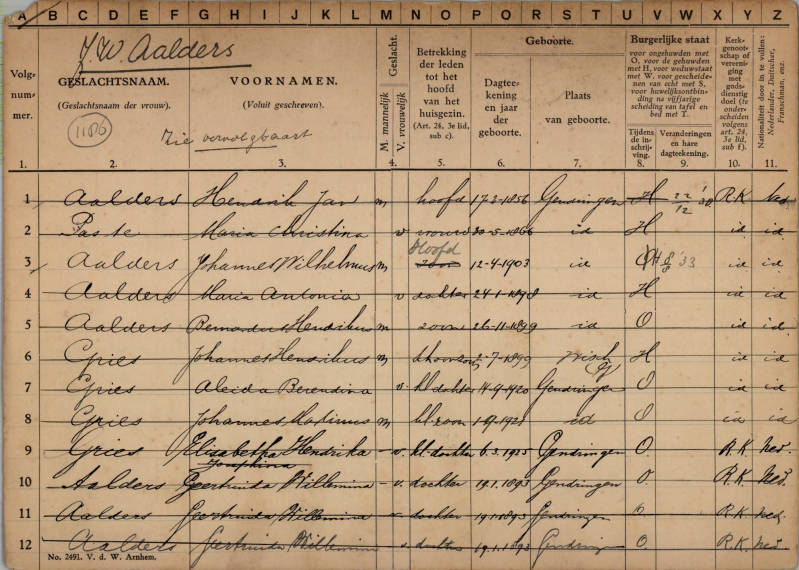 A B C D E F G H I J K L M N O P Q R S T U V W X Y Z
J.W. Aalders
Volg-
num-
mer.
GESLACHTSNAAM.
(Geslachtsnaam der vrouw).
1186
VOORNAMEN.
(Voluit geschreven).
Zie vervolgkaart
Geslacht.
M. mannelijk
V. vrouwelijk
Betrekking
der leden
tot het
hoofd
van het
huisgezin.
(Art. 24, 3e lid,
sub c).
Geboorte.
Dagtee-
kening
en jaar
der
geboorte.
Plaats
van geboorte.
Burgerlijke staat
voor ongehuwden met
O, voor de gehuwden
met H, voor weduwstaat
met W, voor gescheide-
nen van echt met S,
voor huwelijksontbin-
ding na vijfjarige
scheiding van tafel en
bed met T.
Tijdens
de in-
schrij-
ving.
Veranderingen
en hare
dagteekening.
Kerk-
genoot-
schap of
vereeni-
ging
met
gods-
dienstig
doel (te
onder-
scheiden
volgens
art. 24,
3e lid,
sub f).
Nationaliteit door in te vullen:
Nederlander, Duitscher,
Franschman, enz.
1. 2. 3. 4. 5. 6. 7. 8. 9. 10. 11.
1 Aalders Hendrik Jan m hoofd 17-3-1856 Gendringen H 22/12 '38 R.K. Ned.
2 Paste Maria Christina v vrouw 20-5-1866 id H id id
Hoofd
3 Aalders Johannes Wilhelmus m zoon 12-4-1903 id O H 8/8 '33 id id
4 Aalders Maria Antonia v dochter 24-1-1898 id H id id
5 Aalders Bernardus Hendrikus m zoon 26-11-1899 id O id id
6 Gries Johannes Hendrikus m 2-7-1899 Wisch H id id
7 Gries Aleida Berendina v. kl dochter 14-9-1920 Gendringen O id id
8 Gries Johannes m kl. zoon id O id id
9 Gries Elisabetha Hendrika v. kl. dochter 6.3.1925 Gendringen O. R.K. Ned.
Josephina
10 Aalders Geertruida Willemina v. dochter 19.1.1893 Gendringen O. R.K. Ned.
11 Aalders Geertruida Willemina v dochter 19.1.1893 Gendringen O R.K. Ned.
12 Aalders Geertruida Willemina v. dochter 19.1.1893 Gendringen O. R.K. Ned.
No. 2491. V. d. W. Arnhem.